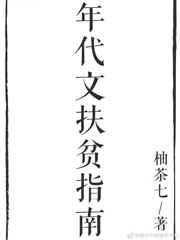 年代文扶贫指南
柚茶七/著